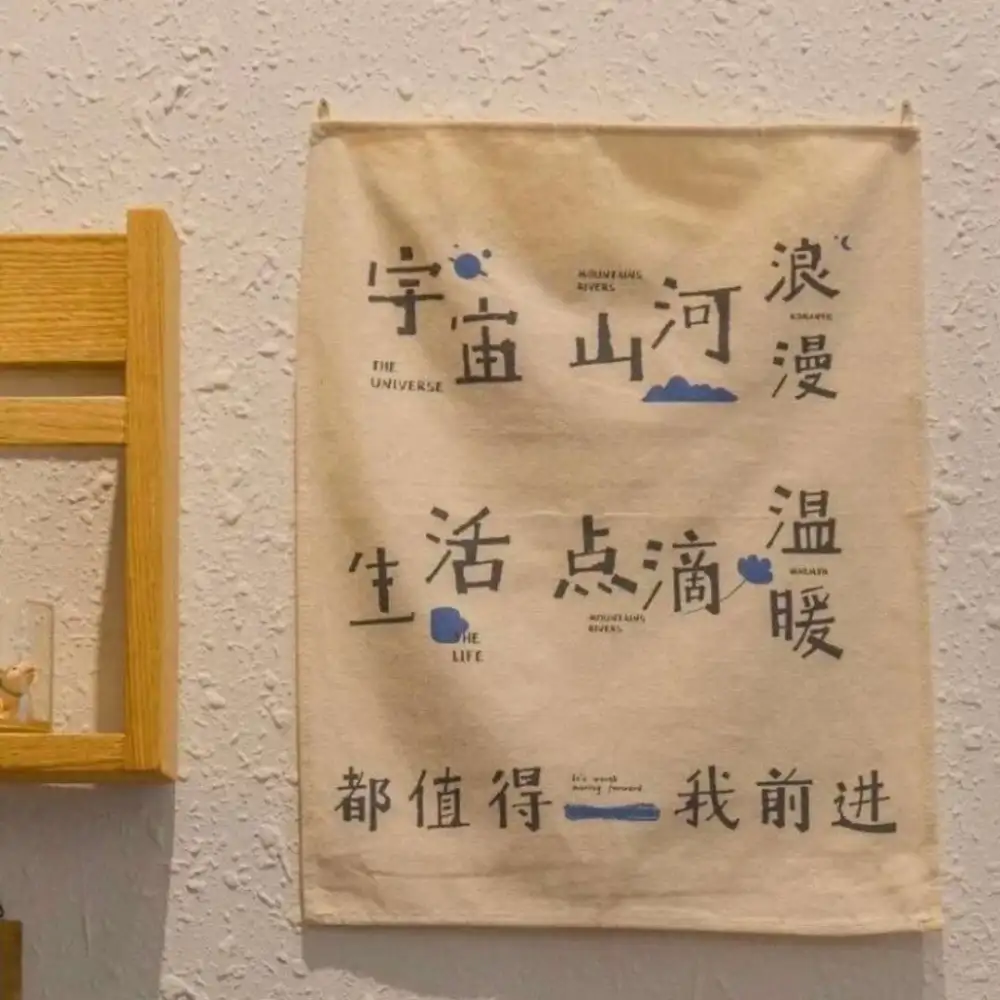 宇宙
THE
UNIVERSE
MOUNTAINS
RIVERS
山河
浪漫
ROMANTIC
生活
THE
LIFE
点滴
MOUNTAINS
RIVERS
温暖
都值得
It's worth
moving forward
我前进